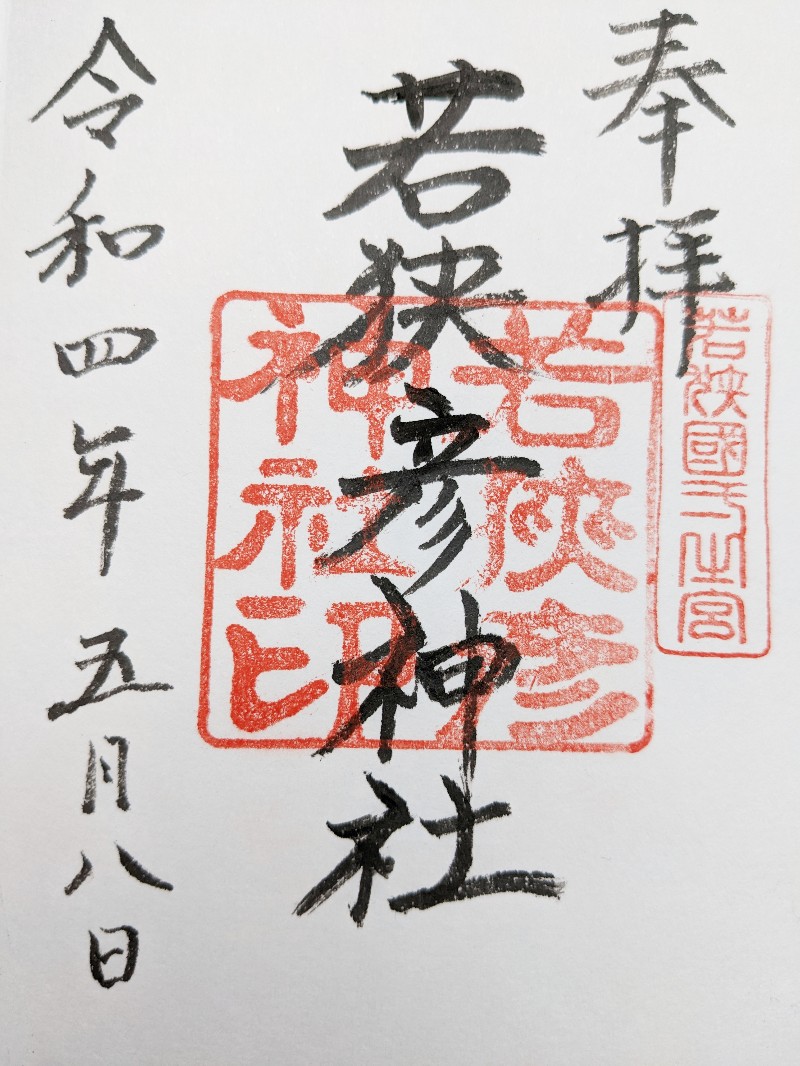 奉拝
若狹國一之宮
若狭彦神社
若狹彦
神社印
令和四年五月八日